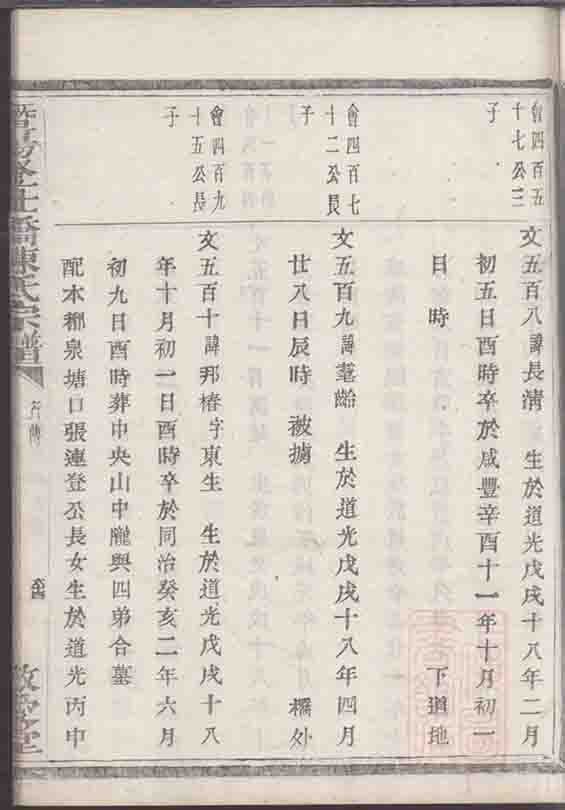 會四百五
十七公三
子
文五百八諱長淸 生於道光戊戌十八年二月
初五日酉時卒於咸豐辛酉十一年十月初一
日 時 下道地
會四百七
十二公長
子
文五百九諱耄齡 生於道光戊戌十八年四月
廿八日辰時 被擄 橋外
會四百九
十五公長
子
文五百十諱邦椿字東生 生於道光戊戌十八
年十月初一日酉時卒於同治癸亥二年六月
初九日酉時葬中央山中隴與四弟合墓
配木橋泉塘口張連登公長女生於道光丙申
橋陳氏宗譜
行傳